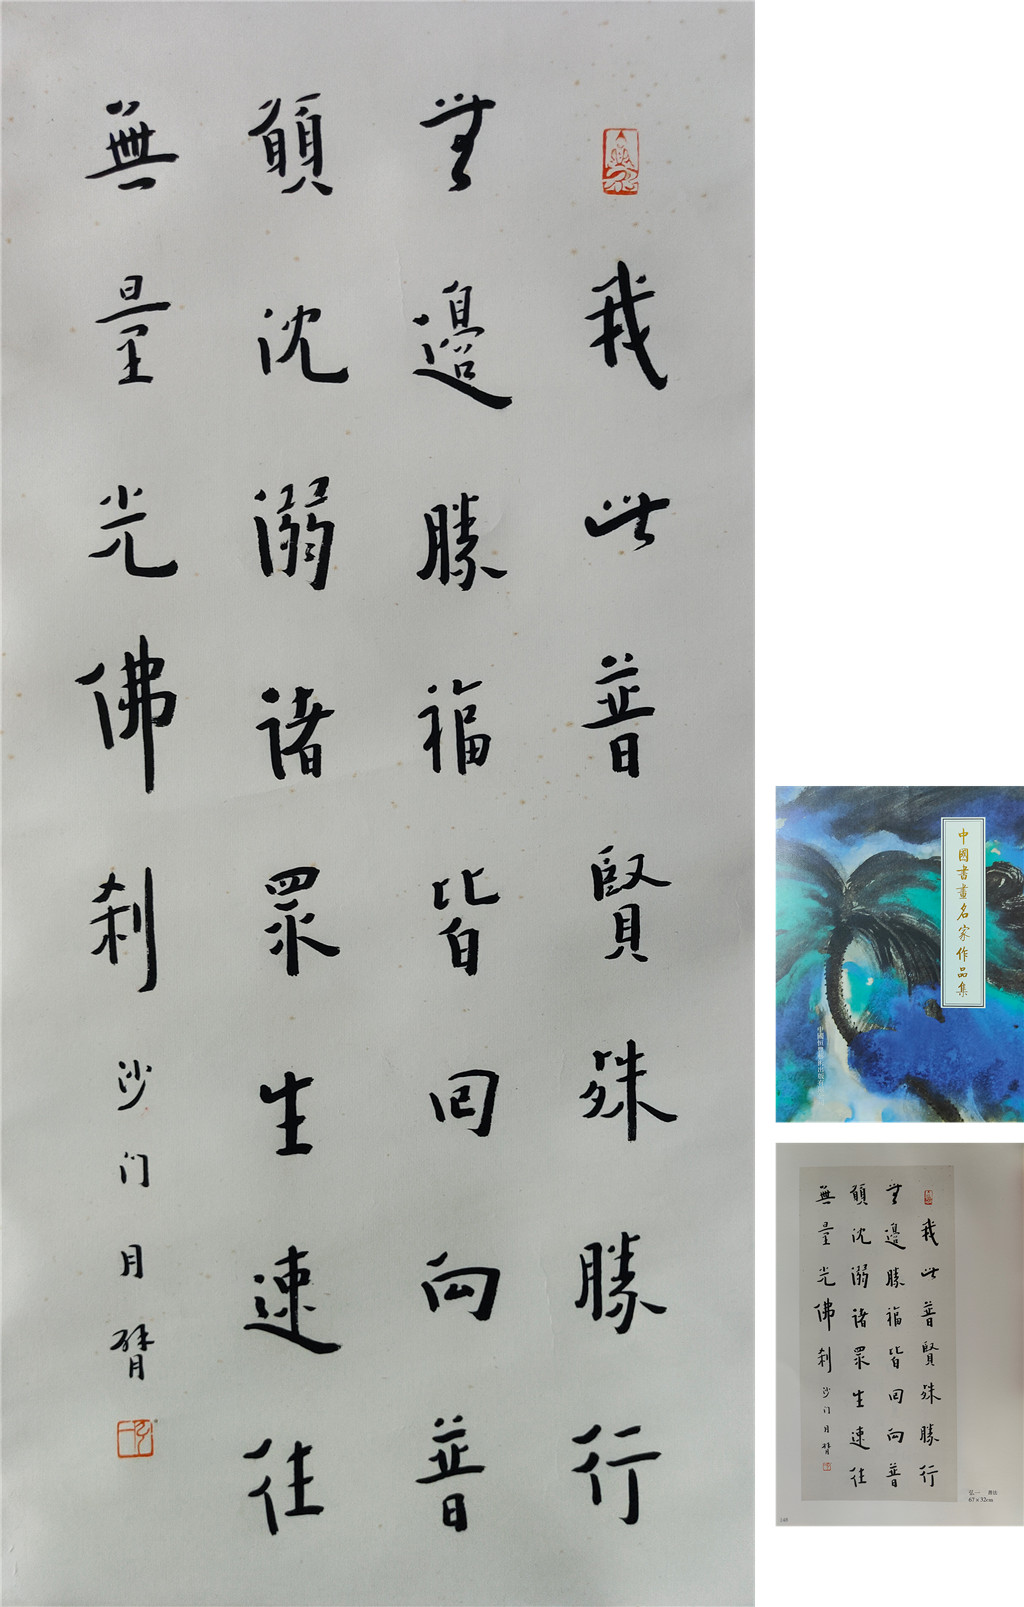 我此普賢殊勝行
無邊勝福皆回向普
願沈溺諸眾生速往
無量光佛刹
沙门月臂
弘一
中國書畫名家作品集
我此普賢殊勝行
無邊勝福皆回向普
願沈溺諸眾生速往
無量光佛刹
沙门月臂
弘一 書法
67×32cm